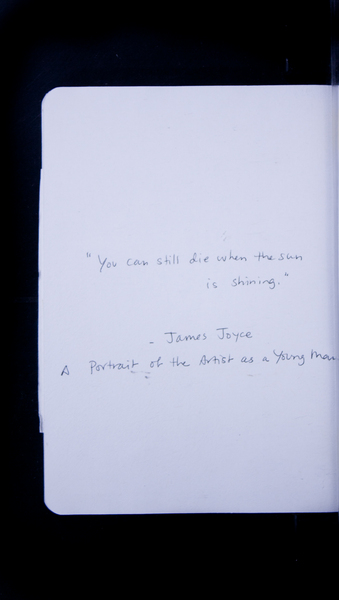 "You can still die when the sun
is shining."
- James Joyce
A Portrait of the Artist as a Young Man